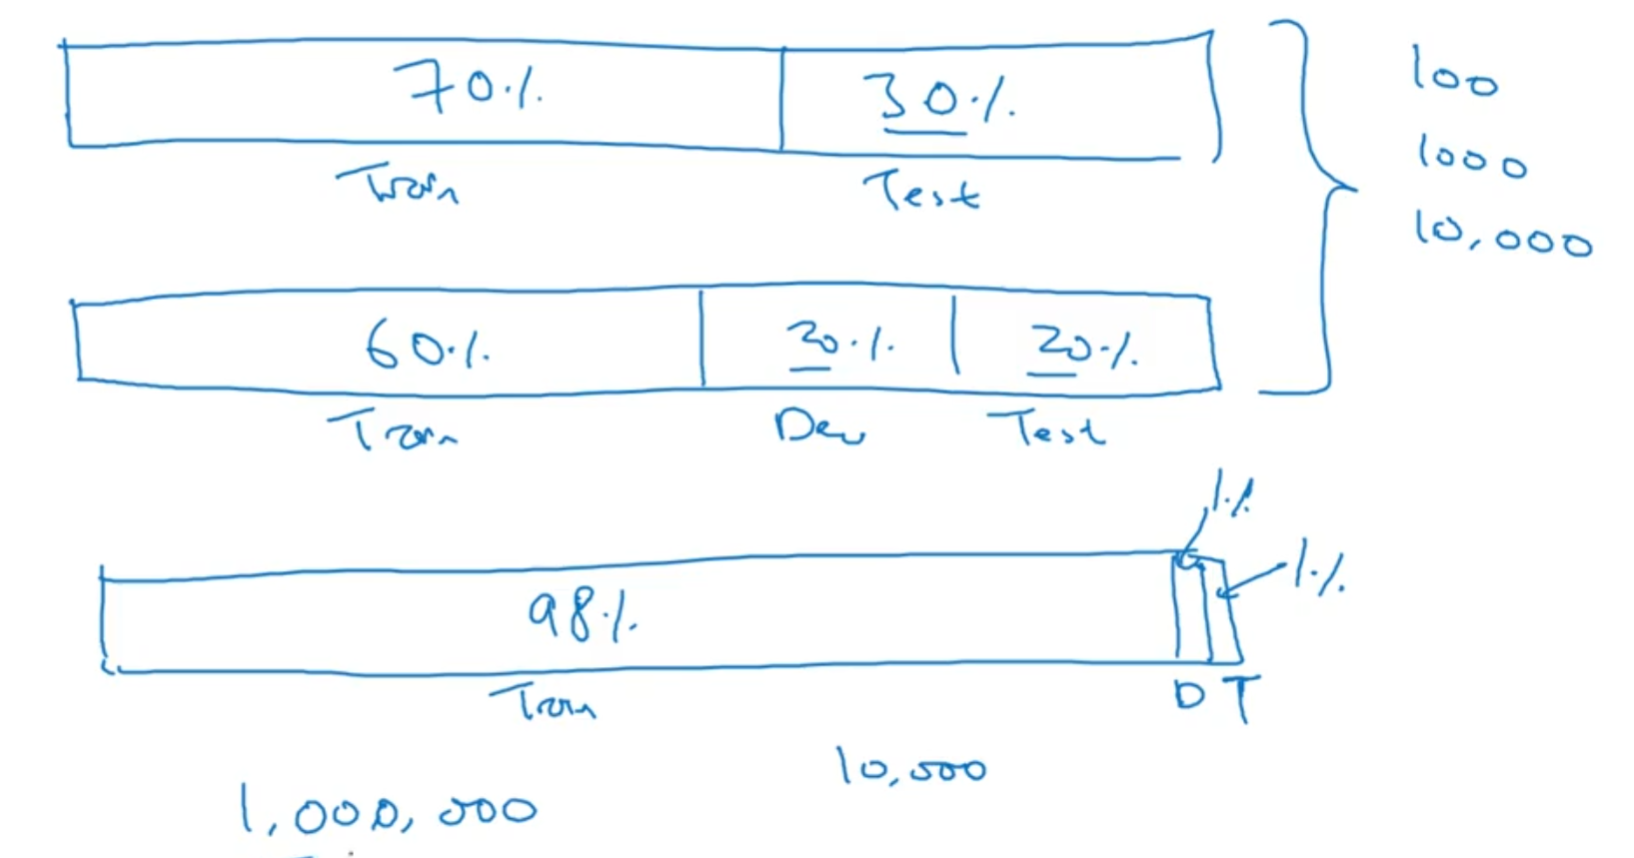 70% 30%
Train Test
100
1000
10,000
60% 20% 20%
Train Dev Test
1%
1%
98%
Train D T
10,000
1,000,000